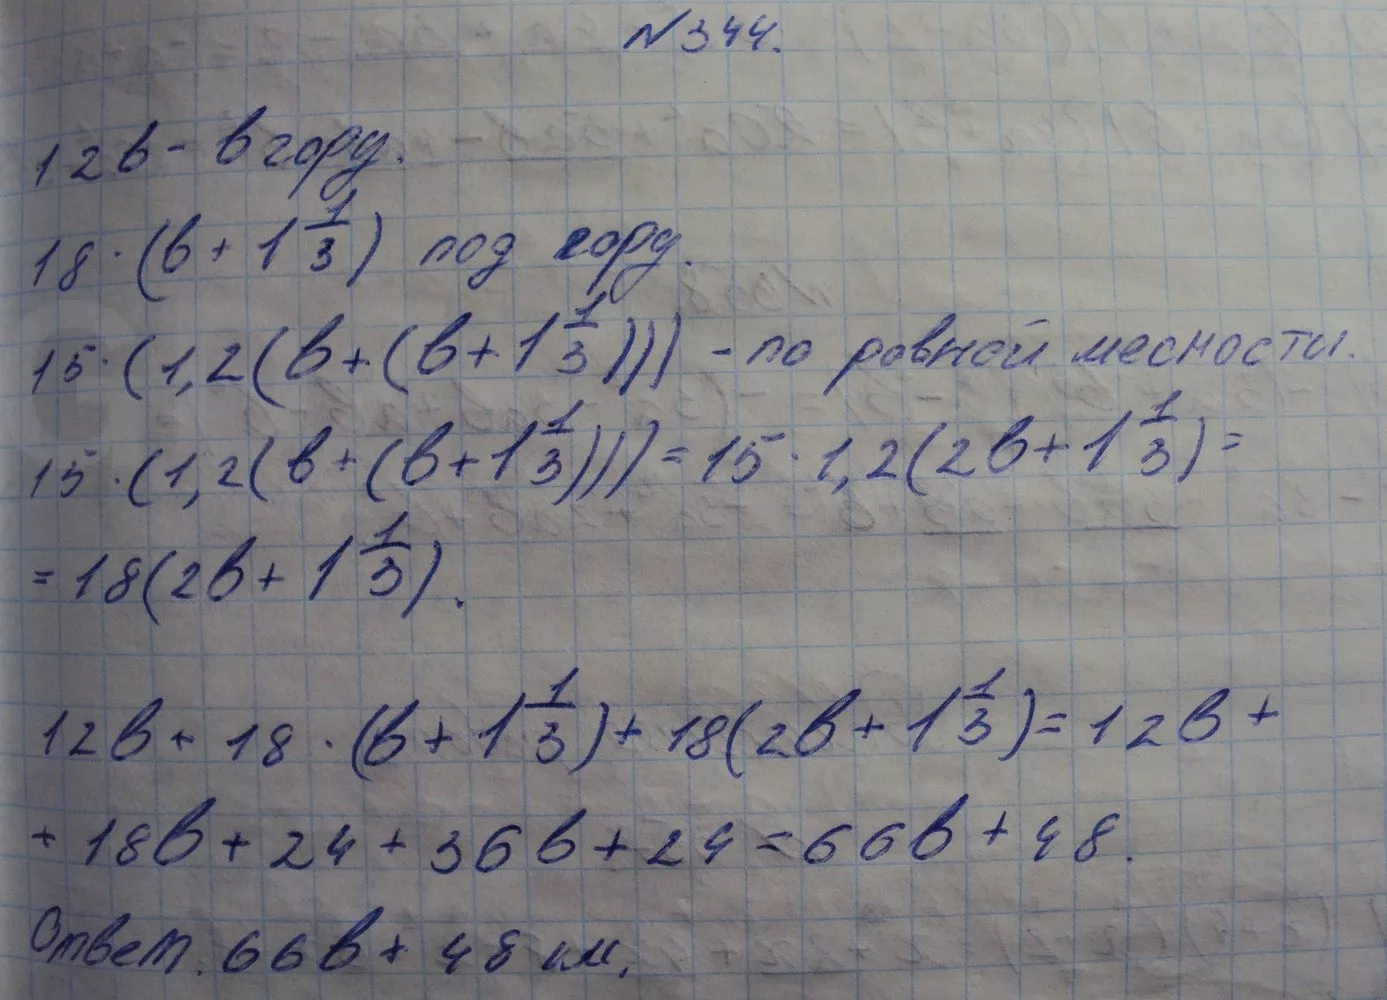 №344.
12в - в гору.
18·(в + 1 1/3) под гору.
15·(1,2(в+(в+1 1/3))) - по ровной месности.
15·(1,2(в+(в+1 1/3))) = 15·1,2(2в+1 1/3) =
= 18(2в + 1 1/3).
12в + 18·(в+1 1/3) + 18(2в+1 1/3) = 12в +
+ 18в + 24 + 36в + 24 = 66в + 48.
Ответ. 66в + 48 км.